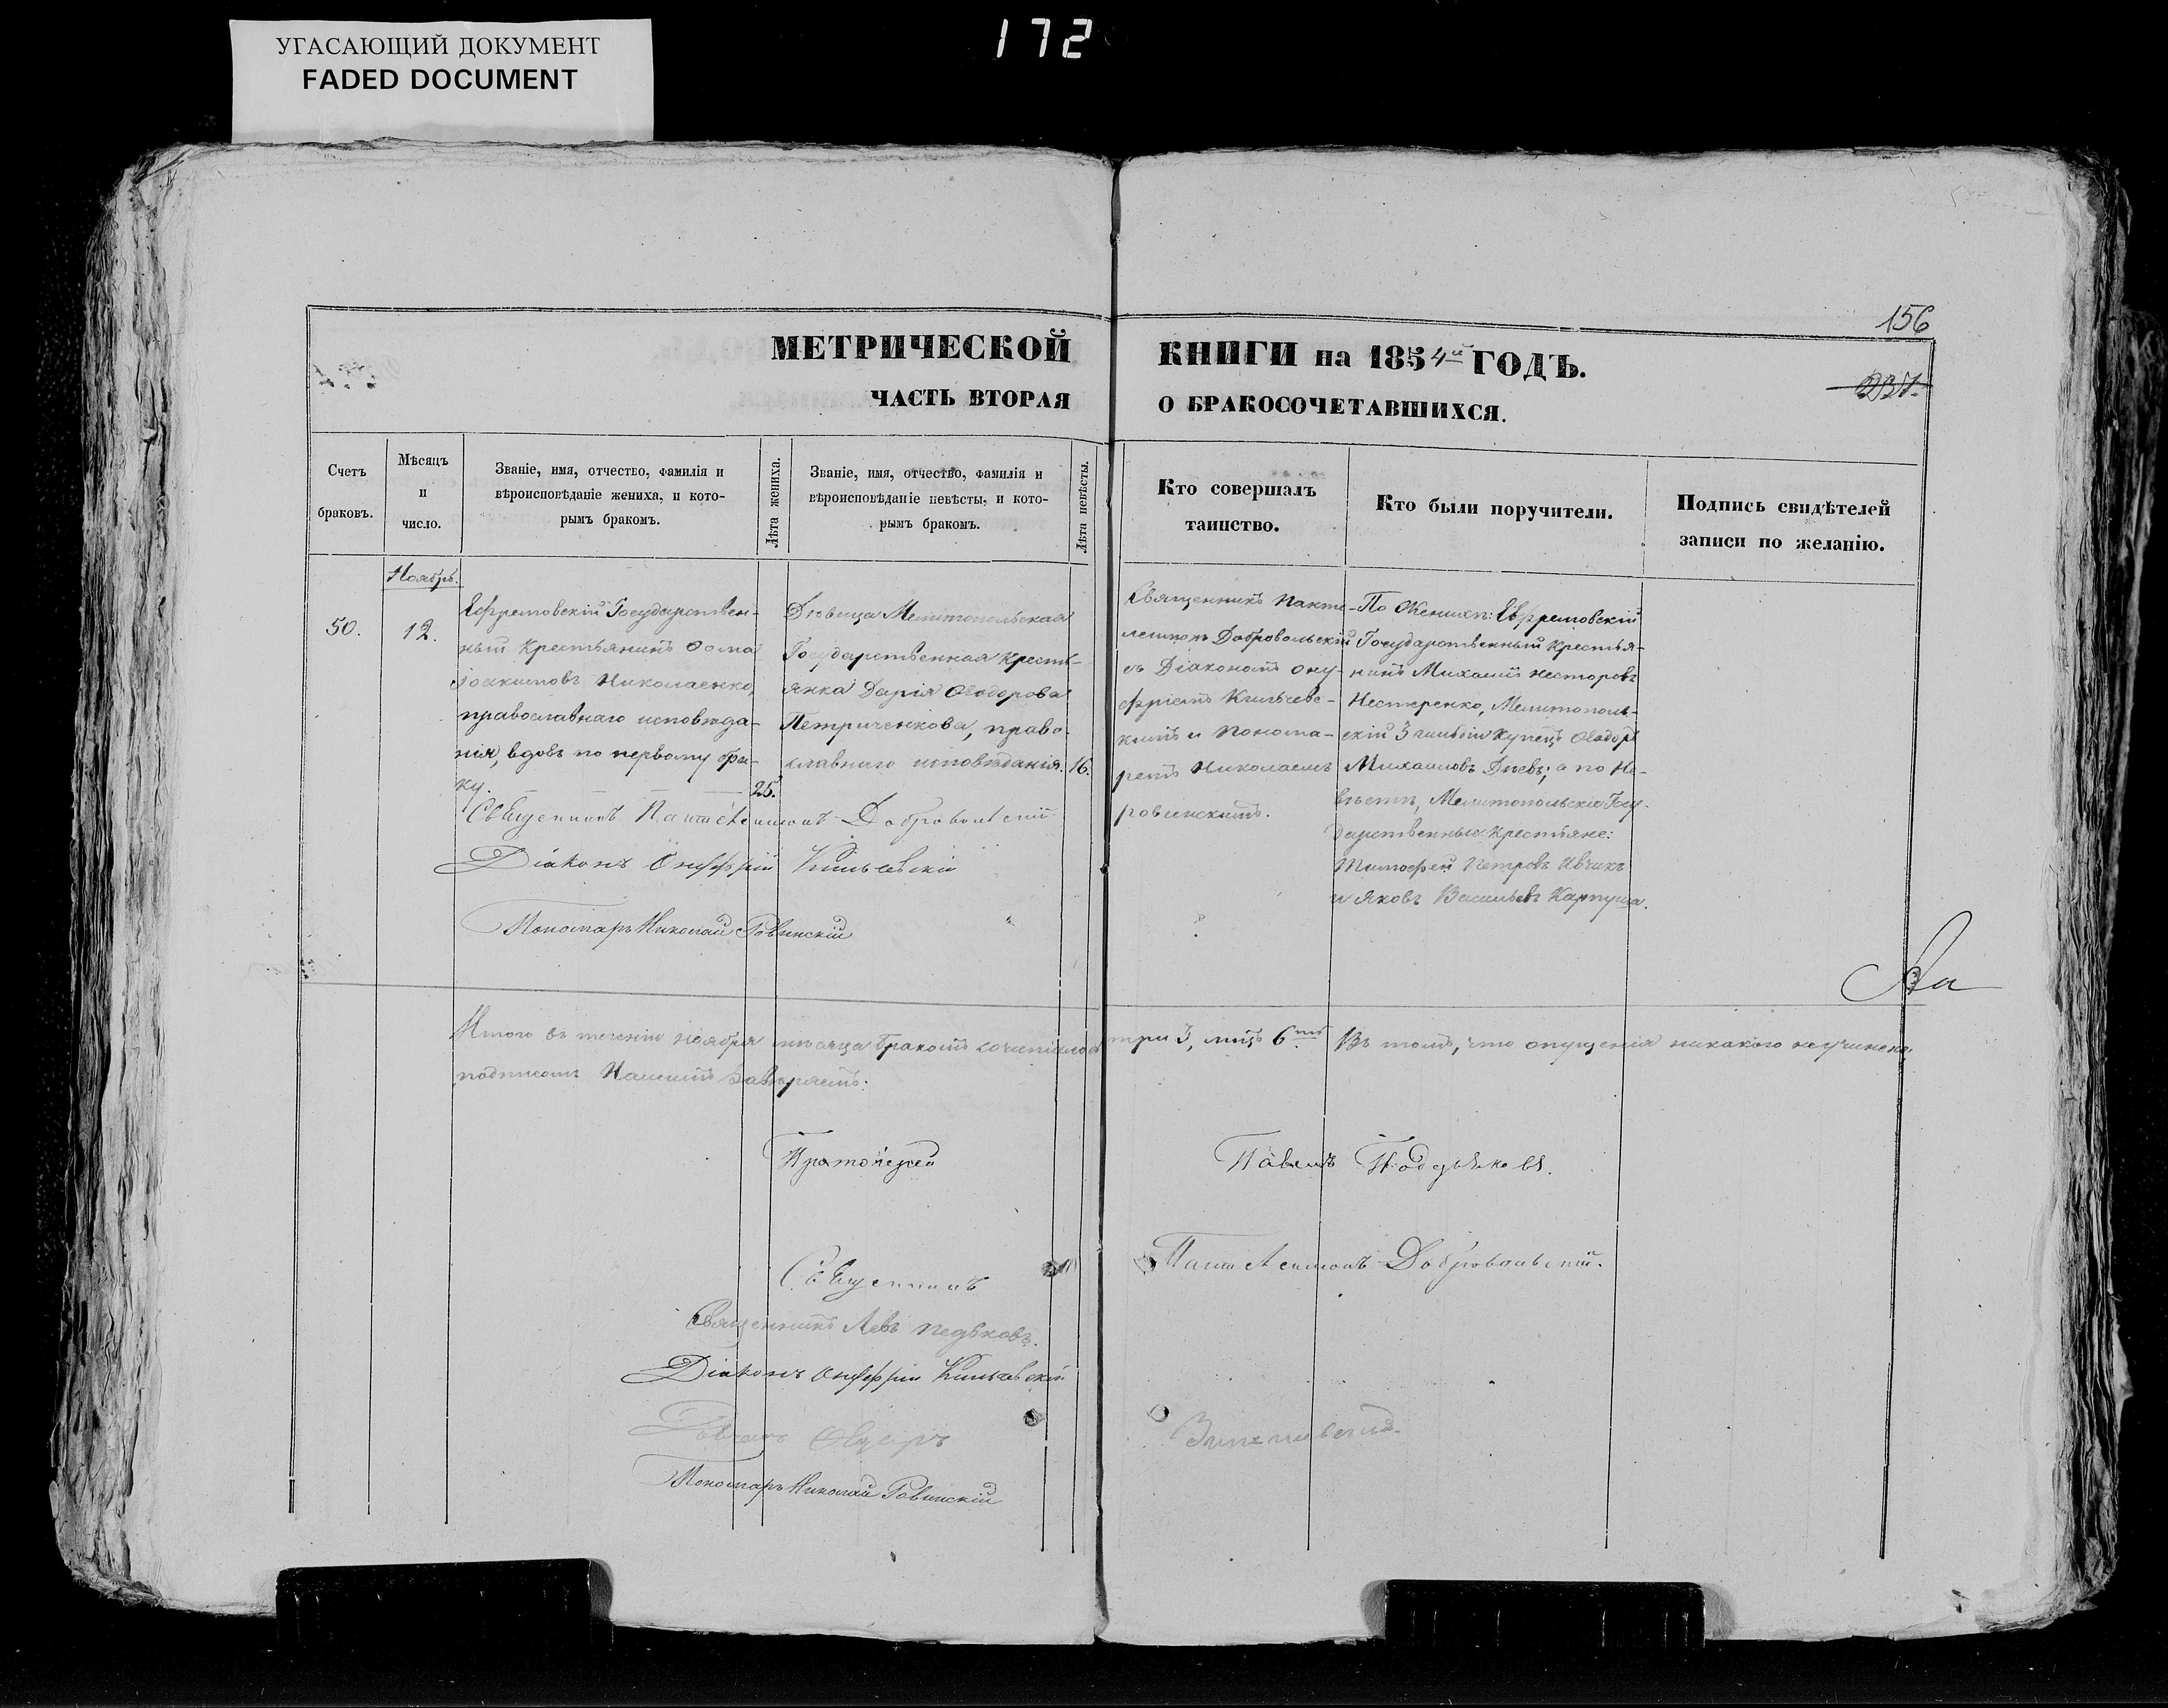 УГАСАЮЩИЙ ДОКУМЕНТ
FADED DOCUMENT
172
156
МЕТРИЧЕСКОЙ КНИГИ на 1854й ГОДЪ.
ЧАСТЬ ВТОРАЯ О БРАКОСОЧЕТАВШИХСЯ.
Счетъ
браковъ.
Мѣсяцъ
и
число.
Званіе, имя, отчество, фамилія и
вѣроисповѣданіе жениха, и кото-
рымъ бракомъ.
Лѣта жениха.
Званіе, имя, отчество, фамилія и
вѣроисповѣданіе невѣсты, и кото-
рымъ бракомъ.
Лѣта невѣсты.
Кто совершалъ
таинство.
Кто были поручители.
Подпись свидѣтелей
записи по желанію.
50.
Ноябрь.
12.
Ефремовскій Государствен-
ный Крестьянинъ Ѳома
Іоакимовъ Николаенко,
православнаго исповѣда-
нія, вдовъ по первому бра-
ку.
25.
Дѣвица Мелитопольская
Государственная Кресть-
янка Дарія Ѳеодорова
Петриченкова, право-
славнаго исповѣданія.
16.
Священникъ Панте-
леимонъ Добровольскій
съ Діакономъ Ону-
фріемъ Кильчевс-
кимъ и Понома-
ремъ Николаемъ
Ровинскимъ.
По Женихѣ: Ефремовскій
Государственный Крестья-
нинъ Михаилъ Несторовъ
Нестеренко, Мелитополь-
скій 3 гильдіи Купецъ Ѳеодоръ
Михаиловъ Дневъ; а по Не-
вѣстѣ, Мелитопольскіе Госу-
дарственные Крестьяне:
Тимофей Петровъ Ивчикъ
и Яковъ Васильевъ Карпуша.
Священникъ Пантелеимонъ Добровольскій
Діаконъ Онуфрій Кильчевскій
Пономарь Николай Ровинскій
Итого въ теченіи ноября мѣсяца бракомъ сочеталось три 3, лицъ 6ть. Въ томъ, что опущенія никакого неучинено
подписомъ Нашимъ заверяемъ:
Протоіерей Павелъ Подъяковъ.
Священникъ Пантелеимонъ Добровольскій.
Священникъ Левъ
Діаконъ Онуфрій Кильчевскій
Пономарь Николай Ровинскій